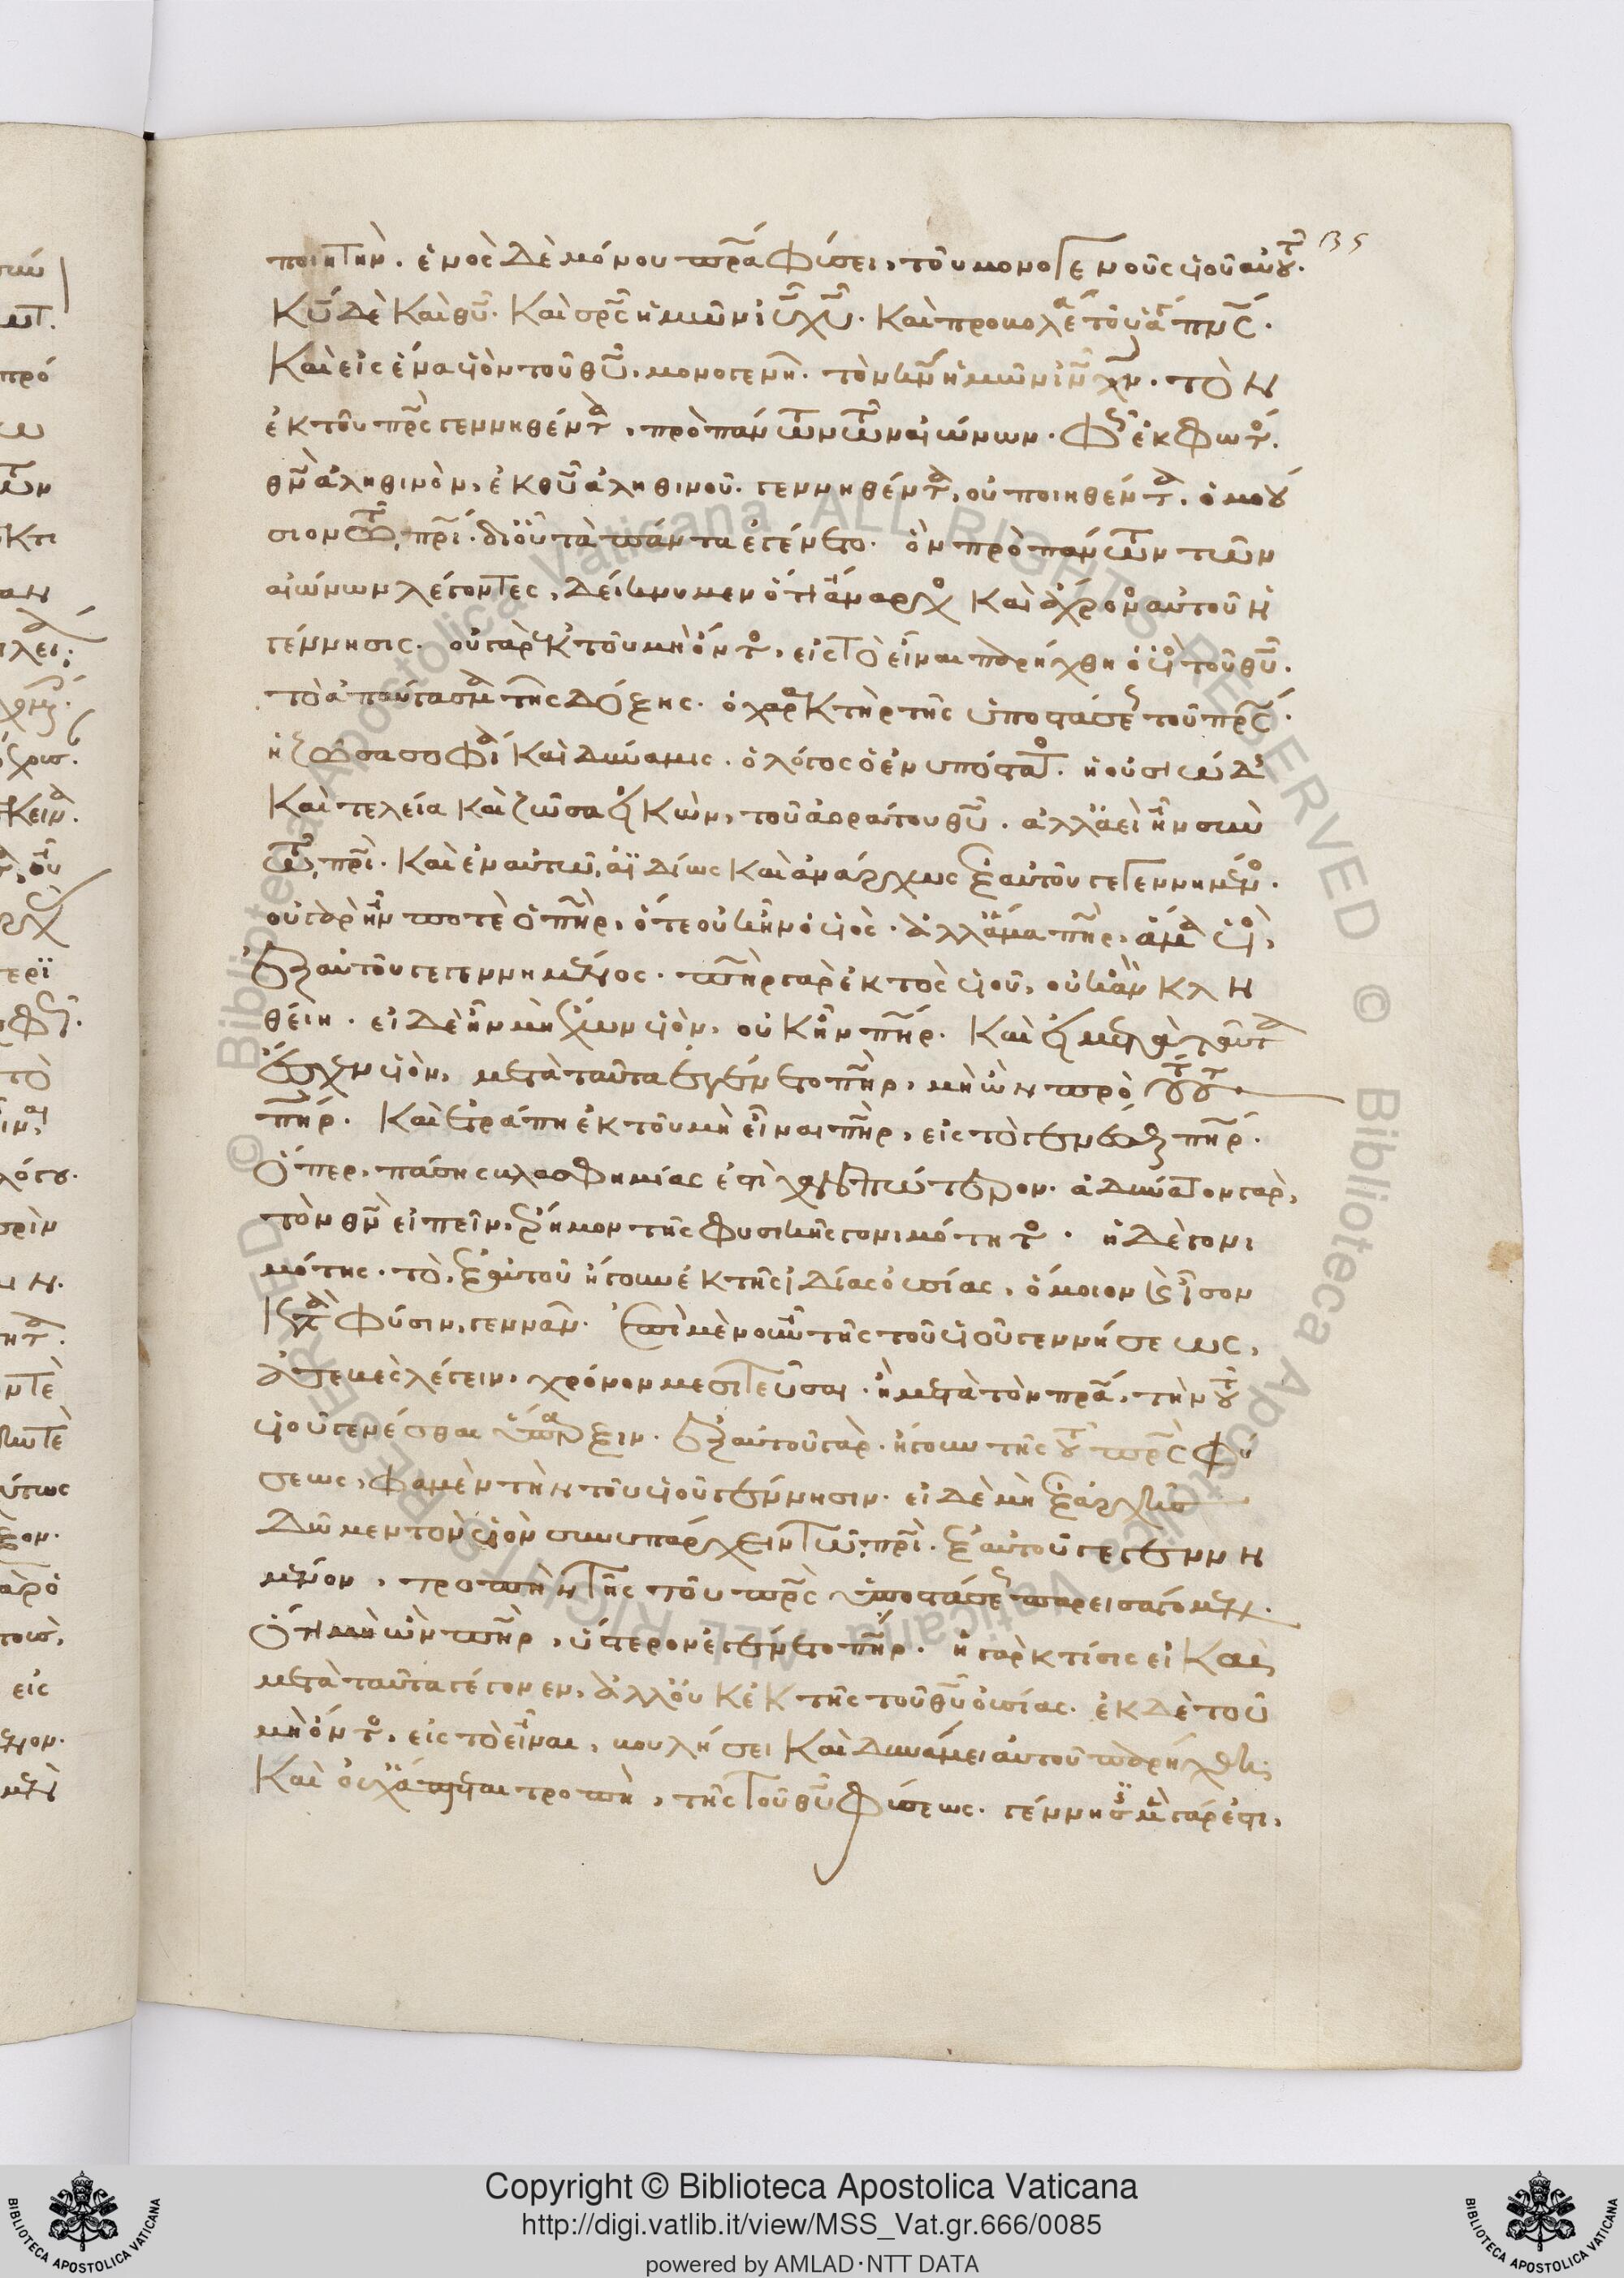 135
ποιητήν. ἑνὸς δὲ μόνου πρα φύσει, τοῦ μονογενοῦς υἱοῦ αὐτοῦ.
κυ δὲ καὶ θυ. καὶ σρς ἡμῶν ιυ χυ. καὶ προβολέα τοῦ πνς.
καὶ εἰς ἕνα υἱὸν τοῦ θυ. μονογενῆ. τὸν κν ἡμῶν ιν χν. τὸν
ἐκ τοῦ πρς γεννηθέντα, πρὸ πάντων τῶν αἰώνων. φῶς ἐκ φωτός.
θν ἀληθινὸν, ἐκ θυ ἀληθινοῦ. γεννηθέντα, οὐ ποιηθέντα. ὁμοού
σιον τῶ πρι. δι' οὗ τὰ πάντα ἐγένετο. ὃν πρὸ πάντων τῶν
αἰώνων λέγοντες, δείκνυμεν ὅτι ἄναρχος καὶ ἄχρονος αὐτοῦ ἡ
γέννησις. οὐ γὰρ ἐκ τοῦ μὴ ὄντος, εἰς τὸ εἶναι παρήχθη ὁ υἱὸς τοῦ θυ.
τὸ ἀπαύγασμα τῆς δόξης. ὁ χαρακτὴρ τῆς ὑποστάσεως τοῦ πρς.
ἡ ζῶσα σοφία καὶ δύναμις. ὁ λόγος ὁ ἐνυπόστατος. ἡ οὐσιώδης
καὶ τελεία καὶ ζῶσα εἰκὼν, τοῦ ἀοράτου θυ. ἀλλ' ἀεὶ ἦν σὺν
τῶ πρι. καὶ ἐν αὐτῶ, ἀϊδίως καὶ ἀνάρχως ἐξ αὐτοῦ γεγεννημένος.
οὐ γὰρ ἦν ποτὲ ὁ πηρ, ὅτε οὐκ ἦν ὁ υἱὸς. ἀλλ' ἅμα πηρ, ἅμα υἱὸς,
ἐξ αὐτοῦ γεγεννημένος. πηρ γὰρ ἐκτὸς υἱοῦ, οὐκ ἂν κλη
θείη. εἰ δὲ ἦν μὴ ἔχων υἱὸν, οὐκ ἦν πηρ. καὶ εἰ μετὰ ταῦτα
ἔσχεν υἱὸν, μετὰ ταῦτα ἐγένετο πηρ, μὴ ὢν πρὸ τούτου
πηρ. καὶ ἐτράπη ἐκ τοῦ μὴ εἶναι πηρ, εἰς τὸ γενέσθαι πηρ.
ὅπερ, πάσης βλασφημίας ἐστὶ χαλεπώτερον. ἀδύνατον γὰρ,
τὸν θν εἰπεῖν, ἔρημον τῆς φυσικῆς γονιμότητος. ἡ δὲ γονι
μότης. τὸ, ἐξ αὐτοῦ ἤγουν ἐκ τῆς ἰδίας οὐσίας, ὅμοιον καὶ ἴσον
κατὰ φύσιν, γεννᾶν. ἐπὶ μὲν οὖν τῆς τοῦ υἱοῦ γεννήσεως,
ἀσεβὲς λέγειν, χρόνον μεσιτεῦσαι. ἢ μετὰ τὸν πρα, τὴν τοῦ
υἱοῦ γενέσθαι ὕπαρξιν. ἐξ αὐτοῦ γὰρ. ἤγουν τῆς τοῦ πρς φύ
σεως, φαμὲν τὴν τοῦ υἱοῦ γέννησιν. εἰ δὲ μὴ ἐξ ἀρχῆς
δῶμεν τὸν υἱὸν συνυπάρχειν τῶ πρι. ἐξ αὐτοῦ γεγεννη
μένον, τροπὴν τῆς τοῦ πρς ὑποστάσεως παρεισάγομεν.
ὅτι μὴ ὢν πηρ, ὕστερον ἐγένετο πηρ. ἡ γὰρ κτίσις εἰ καὶ
μετὰ ταῦτα γέγονεν, ἀλλ' οὐκ ἐκ τῆς τοῦ θυ οὐσίας. ἐκ δὲ τοῦ
μὴ ὄντος, εἰς τὸ εἶναι, βουλήσει καὶ δυνάμει αὐτοῦ παρήχθη.
καὶ οὐχ ἅπτεται τροπὴ, τῆς τοῦ θυ φύσεως. γέννησις μὲν γάρ ἐστι,
Copyright © Biblioteca Apostolica Vaticana
http://digi.vatlib.it/view/MSS_Vat.gr.666/0085
powered by AMLAD·NTT DATA